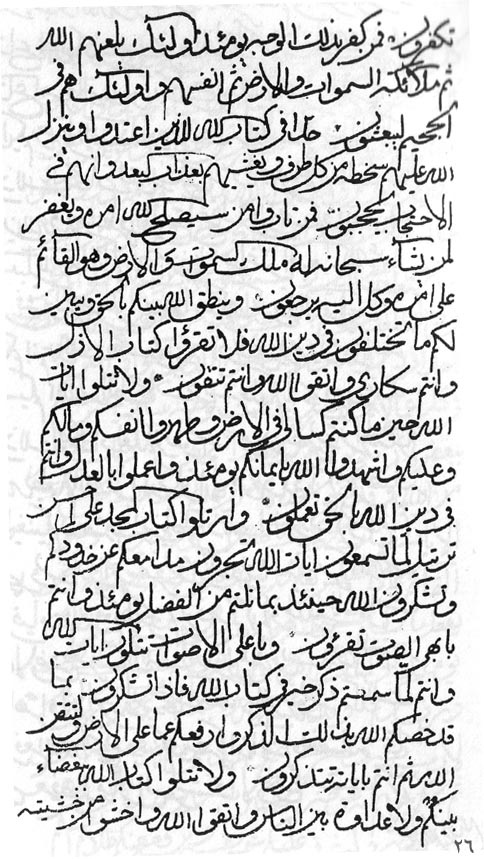 تكفرون فمن كفر بذلك الوجه يومئذ اولئك يلعنهم الله
ثم ملائكة السموات والارض ثم انفسهم واولئك هم في
الجحيم ليبعثون في كتاب الله للذين اعتدوا وينزل
الله عليهم سخطه من كل طرف ويغشيهم بعذاب لبعدوانهم في
الاحتجاب ليحجبون فمن تاب وامن سيصلح لله امره ويغفر
لمن يشاء سبحانه له ملك السموات والارض وهو القائم
على امره وكل اليه يرجعون وينطق الله بينكم بالحق ويبين
لكم ما تختلفون في دين الله فلا تقرؤا كتاب الاذن
وانتم سكارى واتقوا الله وانتم تتقون ولا تتلوا ايات
الله حين ما كنتم كسالى في الارض وطهروا انفسكم ومالكم
وعدكم واشهدوا الله بايمانكم يومئذ واعملوا بالعدل وانتم
في دين الله بالحق تعملون وان رتلوا كتاب المجد على
ترتيل لما تسمعون ايات الله تجرون مدامعكم عن خدودكم
وتشكرون الله حينئذ بما نلتم من الفضل يومئذ وانتم
بابهر الصوت تقرؤن وباعلى الاصوات تتلون ايات الله
وانتم لما سمعتم ذكر خير في كتاب الله فاذا تشكرون بما
قد خصكم الله بذلك الذكر وارفعكم عما على الارض وليتقن
الله ثم انتم باياته تتذكرون ولا تتلوا كتاب الله ببغضاء
بينكم ولا عداوة بين الناس واتقوا الله واخشوا من خشيته
٢٦